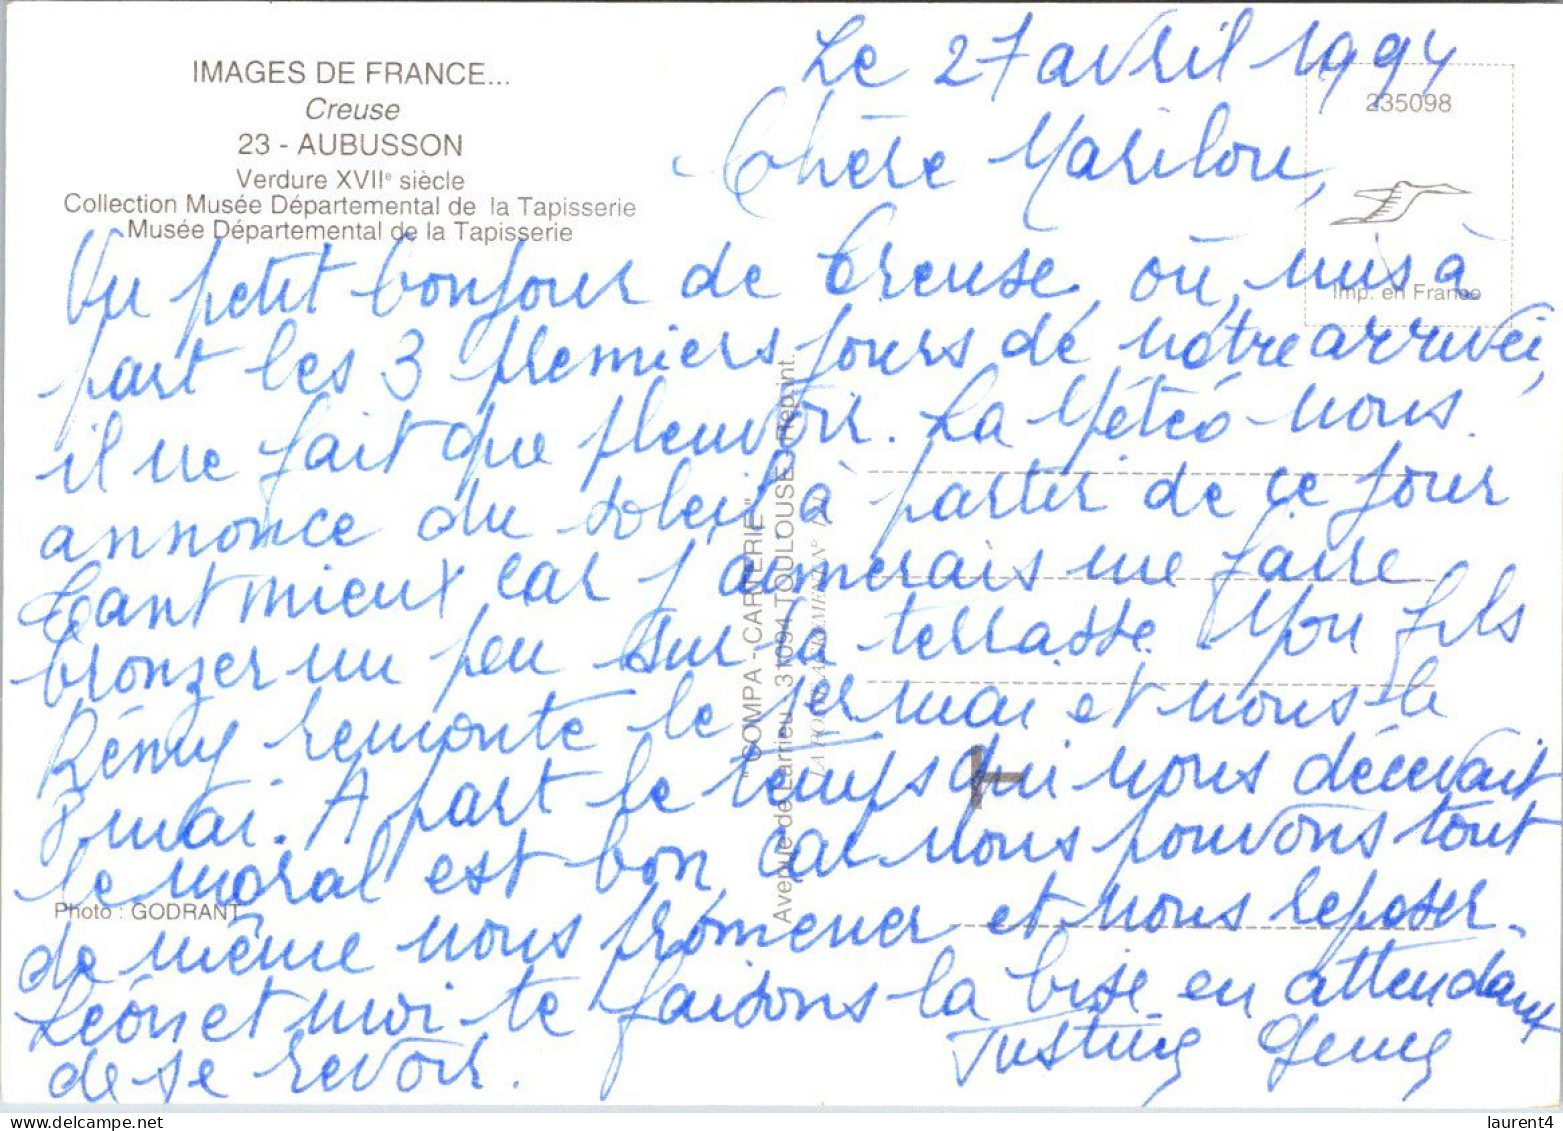 IMAGES DE FRANCE...
Creuse
23 - AUBUSSON
Verdure XVIIe siècle
Collection Musée Départemental de la Tapisserie
Musée Départemental de la Tapisserie
235098
Imp. en France
Le 27 avril 1994
Chère Marilou,
Un petit bonjour de Creuse où, mis à
part les 3 premiers jours de nôtre arrivée,
il ne fait que pleuvoir. La Météo nous
annonce du soleil à partir de ce jour
tant mieux car j'aimerais me faire
bronzer un peu sur la terrasse. Mon fils
Rémy remonte le 1er mai et nous le
8 mai. A part le temps qui nous décevait
le moral est bon car nous pouvons tout
de même nous promener et nous reposer.
Léon et moi te faisons la bise en attendant
de se revoir.
"SOMPA - CARTERIE"
Avenue de Larrieu 31094 TOULOUSE Rep. int.
Photo : GODRANT
www.delcampe.net
laurent4